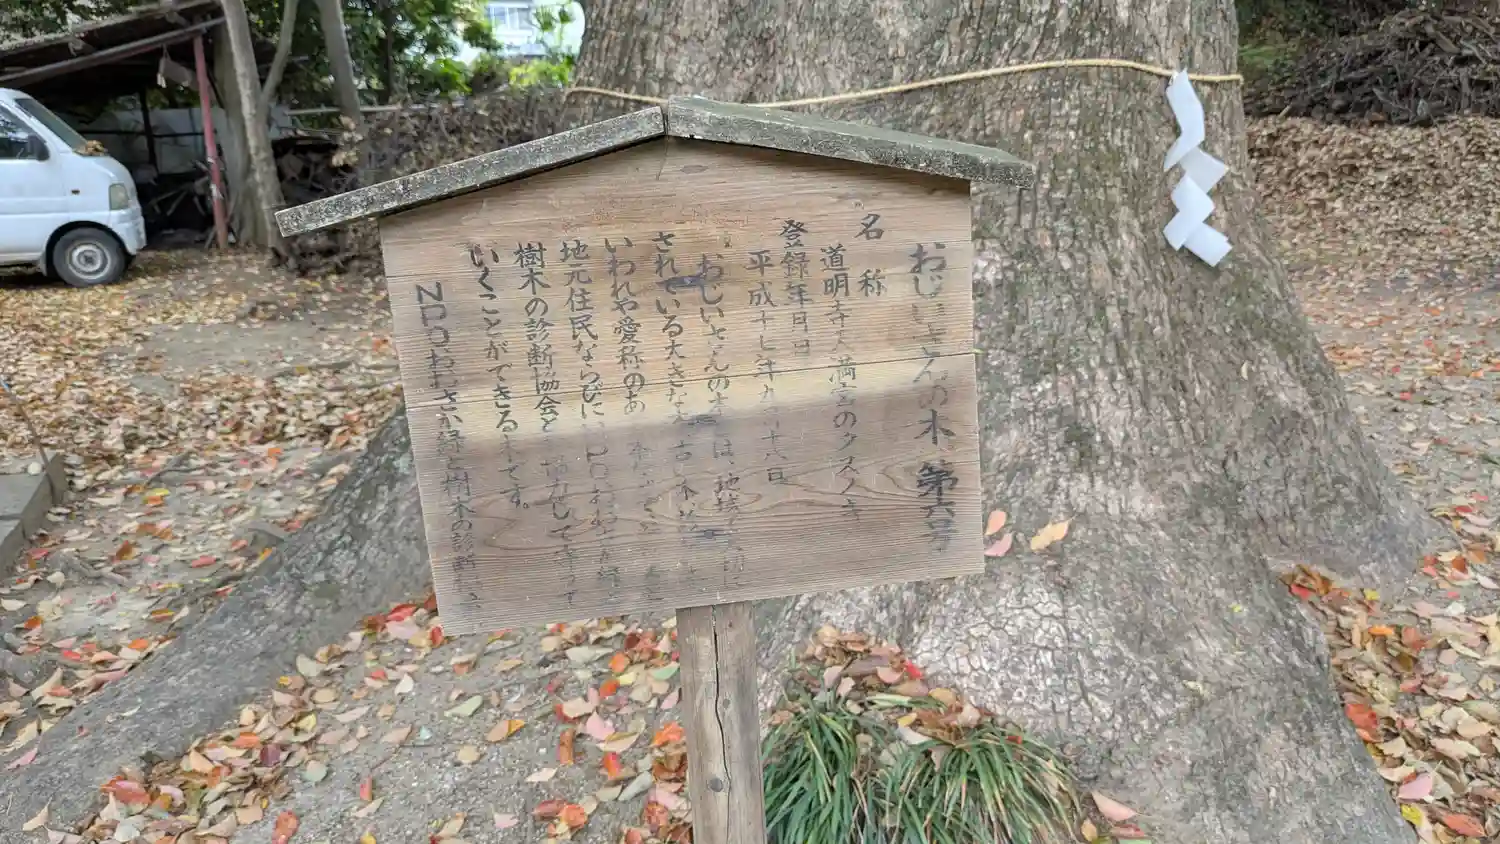 おじいさんの木 第六号
名称
道明寺天満宮のクスノキ
登録年月日
平成十七年九月十六日
おじいさんの木とは、地域で大切に
されている大きな木、古い木
いわれや愛称のある
地元住民ならびにNPOおおさか緑と
樹木の診断協会と協力して守って
いくことができる木です。
NPOおおさか緑と樹木の診断協会